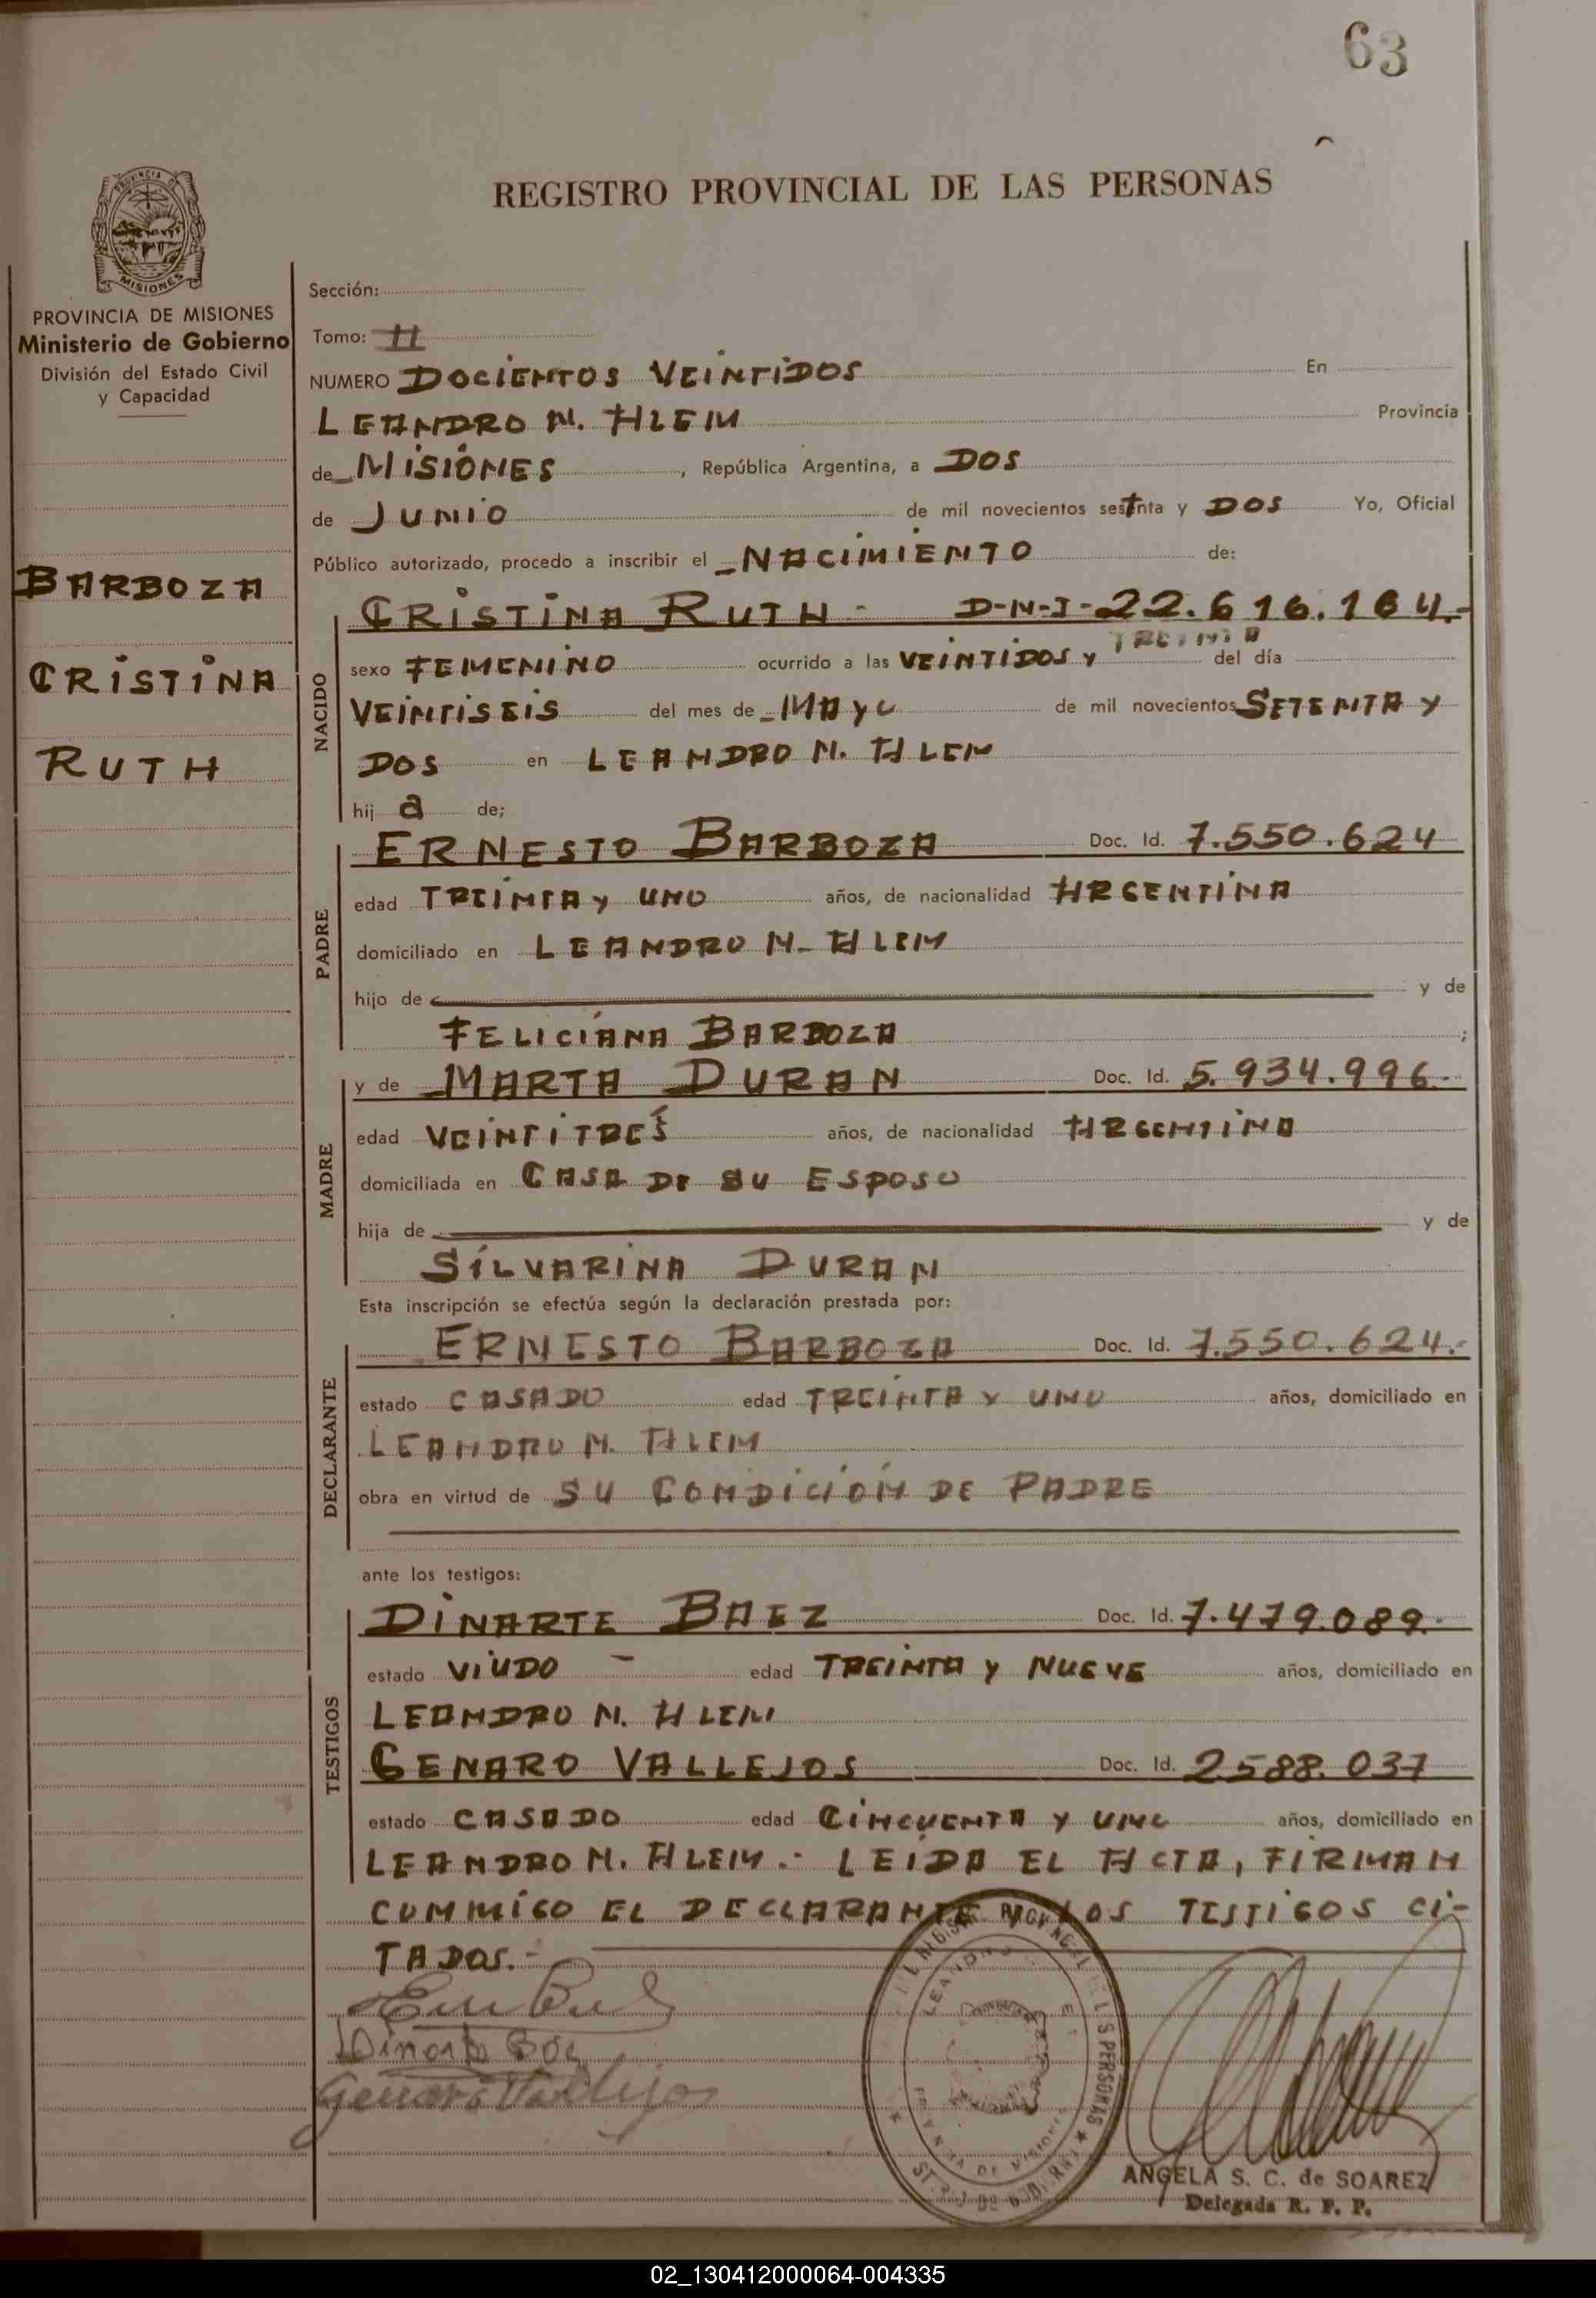 63
REGISTRO PROVINCIAL DE LAS PERSONAS
PROVINCIA DE MISIONES
Ministerio de Gobierno
División del Estado Civil
y Capacidad
BARBOZA
CRISTINA
RUTH
Sección:
Tomo: II
NUMERO DOCIENTOS VEINTIDOS En
LEANDRO N. ALEM Provincia
de MISIONES, República Argentina, a DOS
de JUNIO de mil novecientos sestnta y DOS Yo, Oficial
Público autorizado, procedo a inscribir el NACIMIENTO de:
NACIDO
CRISTINA RUTH - D-N-I-22.616.164.-
sexo FEMENINO ocurrido a las VEINTIDOS y TREINTA del día
VEINTISEIS del mes de MAYO de mil novecientos SETENTA Y
DOS en LEANDRO N. ALEM
hij a de;
PADRE
ERNESTO BARBOZA Doc. Id. 7.550.624
edad TREINTA y UNO años, de nacionalidad ARGENTINA
domiciliado en LEANDRO N. ALEM
hijo de y de
FELICIANA BARBOZA ;
MADRE
y de MARTA DURAN Doc. Id. 5.934.996.-
edad VEINTITRES años, de nacionalidad ARGENTINA
domiciliada en CASA DE SU ESPOSO
hija de y de
SILVARINA DURAN
Esta inscripción se efectúa según la declaración prestada por:
DECLARANTE
ERNESTO BARBOZA Doc. Id. 7.550.624.-
estado CASADO edad TREINTA Y UNO años, domiciliado en
LEANDRO N. ALEM
obra en virtud de SU CONDICIÓN DE PADRE
ante los testigos:
TESTIGOS
DINARTE BAEZ Doc. Id. 7.479.089.-
estado VIUDO - edad TREINTA y NUEVE años, domiciliado en
LEANDRO N. ALEM
GENARO VALLEJOS Doc. Id. 2588.037
estado CASADO edad CINCUENTA Y UNO años, domiciliado en
LEANDRO N. ALEM.- LEIDA EL ACTA, FIRMAN
CONMIGO EL DECLARANTE Y LOS TESTIGOS CI-
TADOS.-
Genaro Vallejos
ANGELA S. C. de SOAREZ
Delegada R. P. P.
02_130412000064-004335